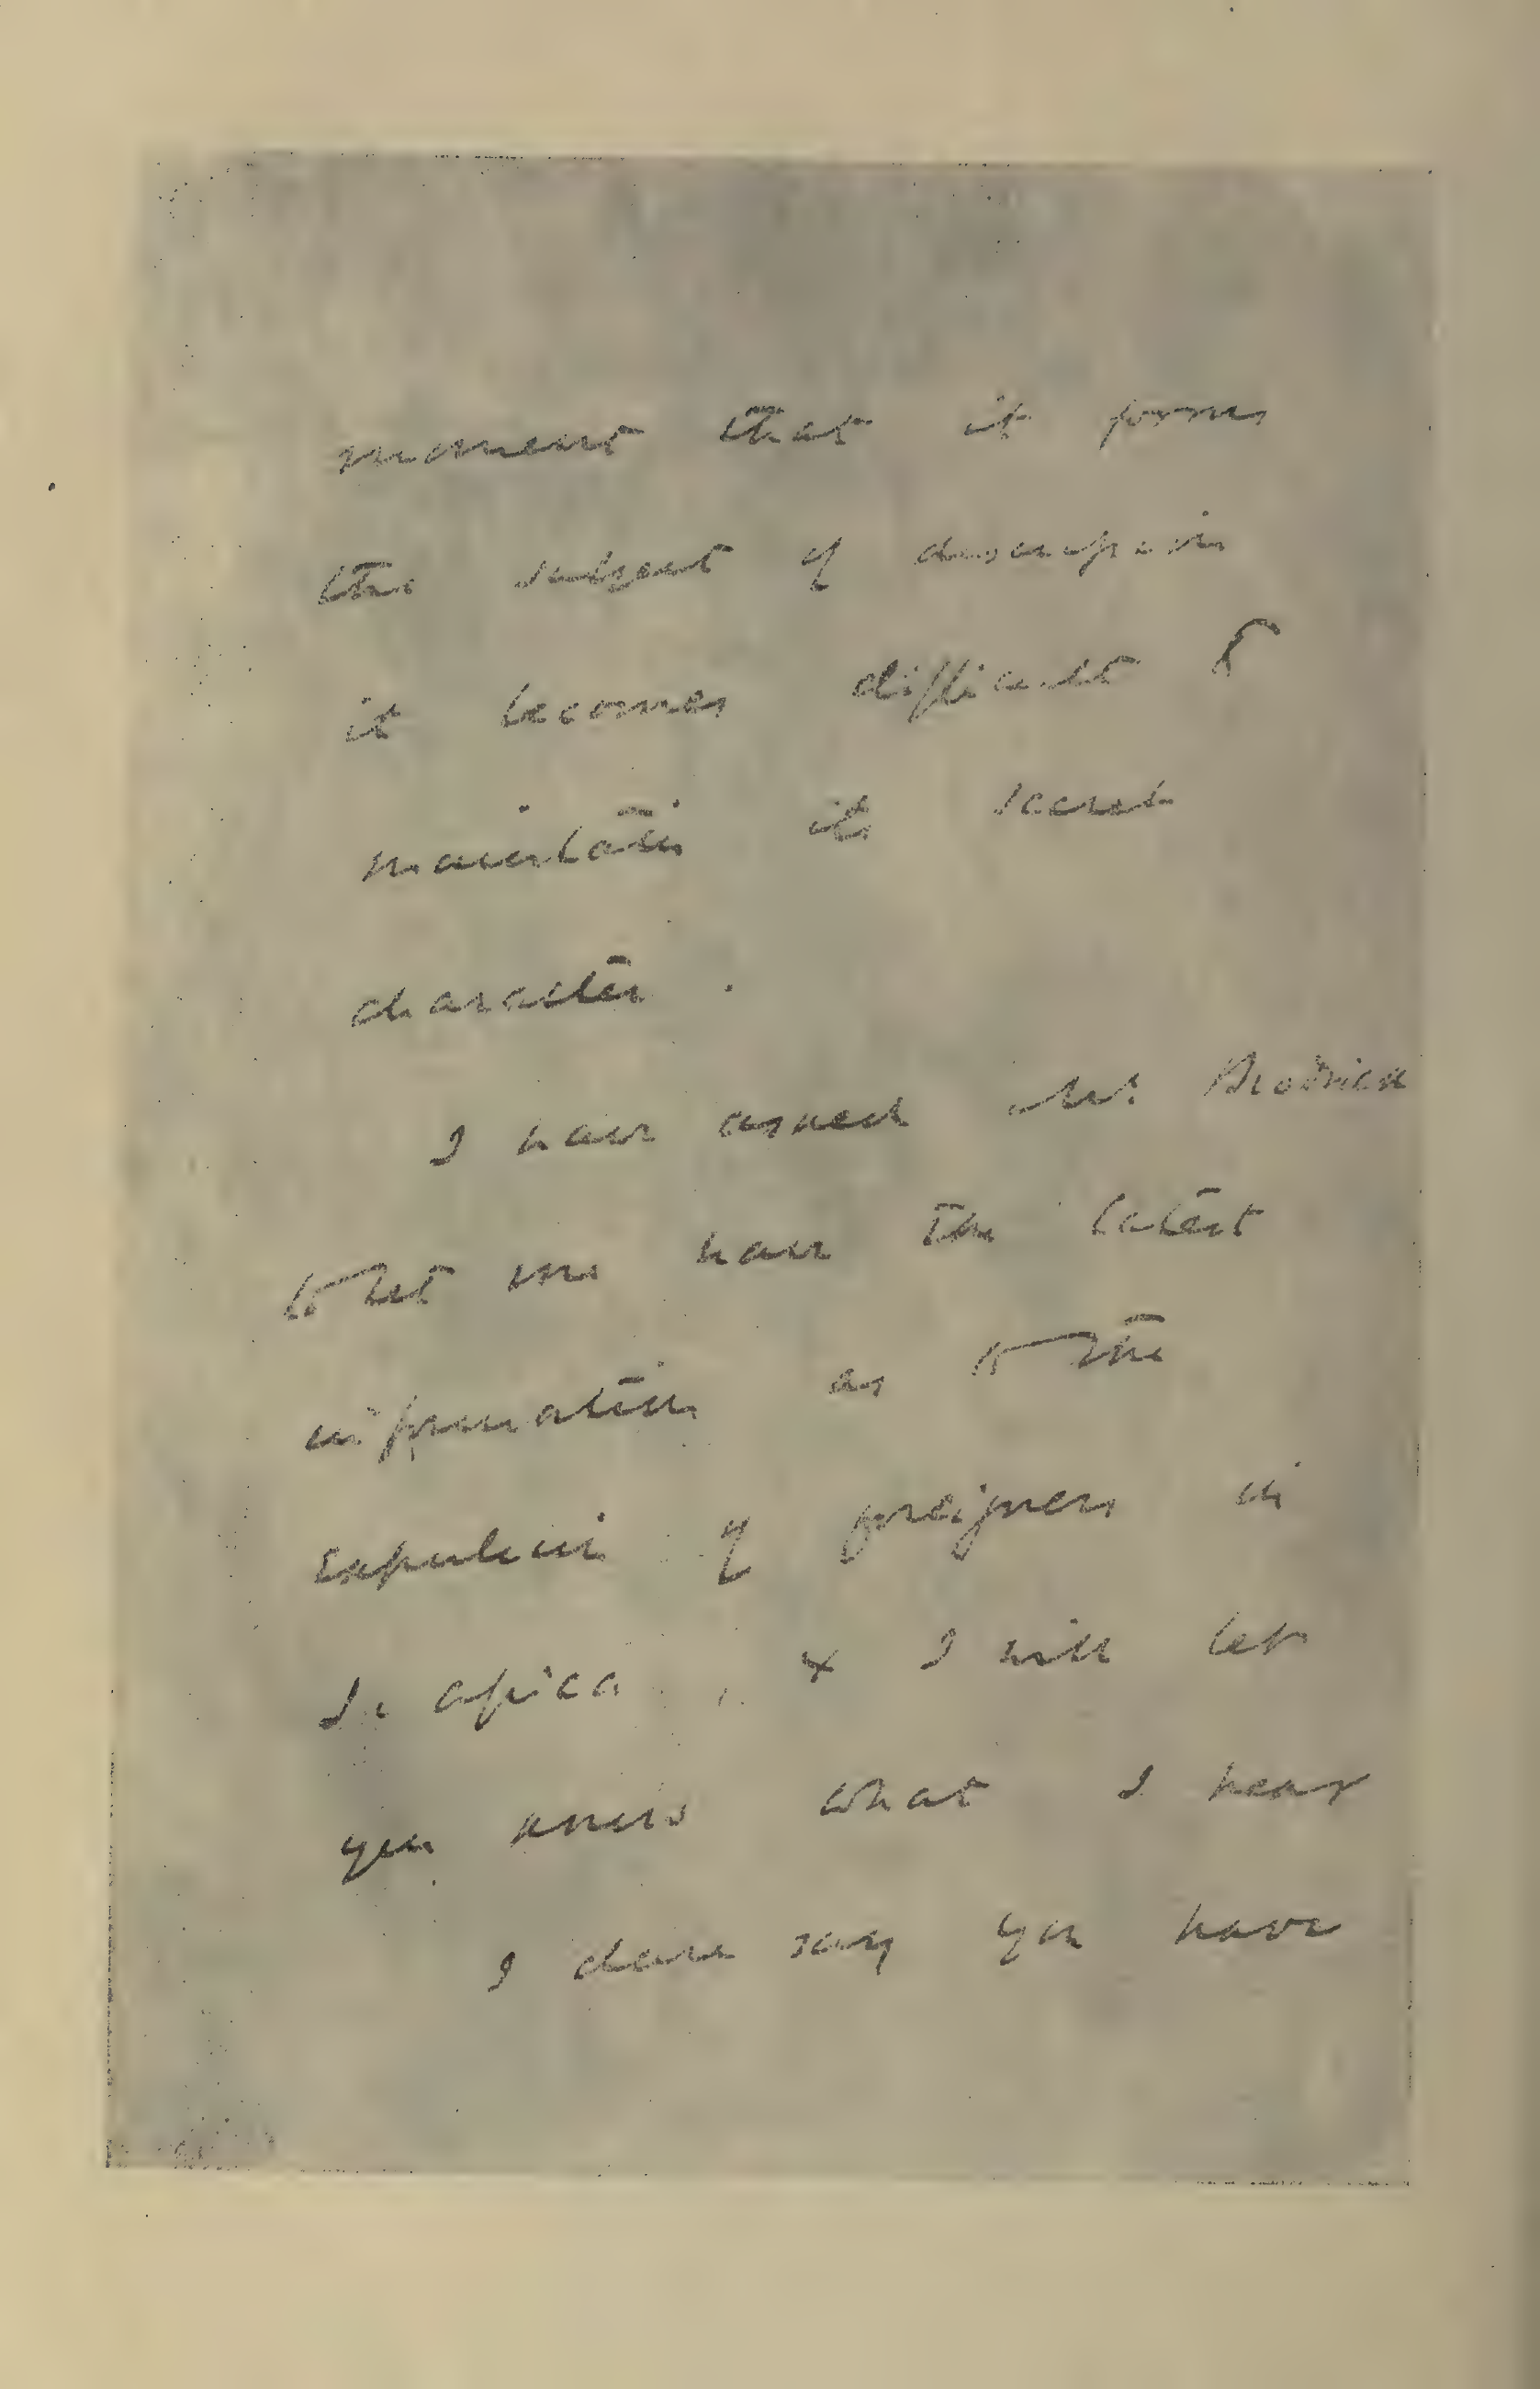 moment that it forms
the subject of description
it becomes difficult to
maintain its secret
character.
I have asked Mr. Brodrick
to let me have the latest
information as to the
expulsion of foreigners in
S. Africa, & I will let
you know what I hear
I dare say you have